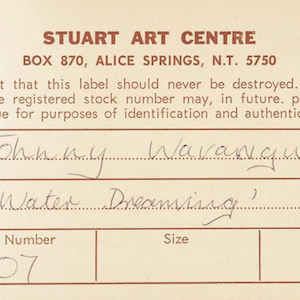 STUART ART CENTRE
BOX 870, ALICE SPRINGS, N.T. 5750
t that this label should never be destroyed.
e registered stock number may, in future. p
ue for purposes of identification and authentic
Johnny Warangu
Water Dreaming'
Number Size
07